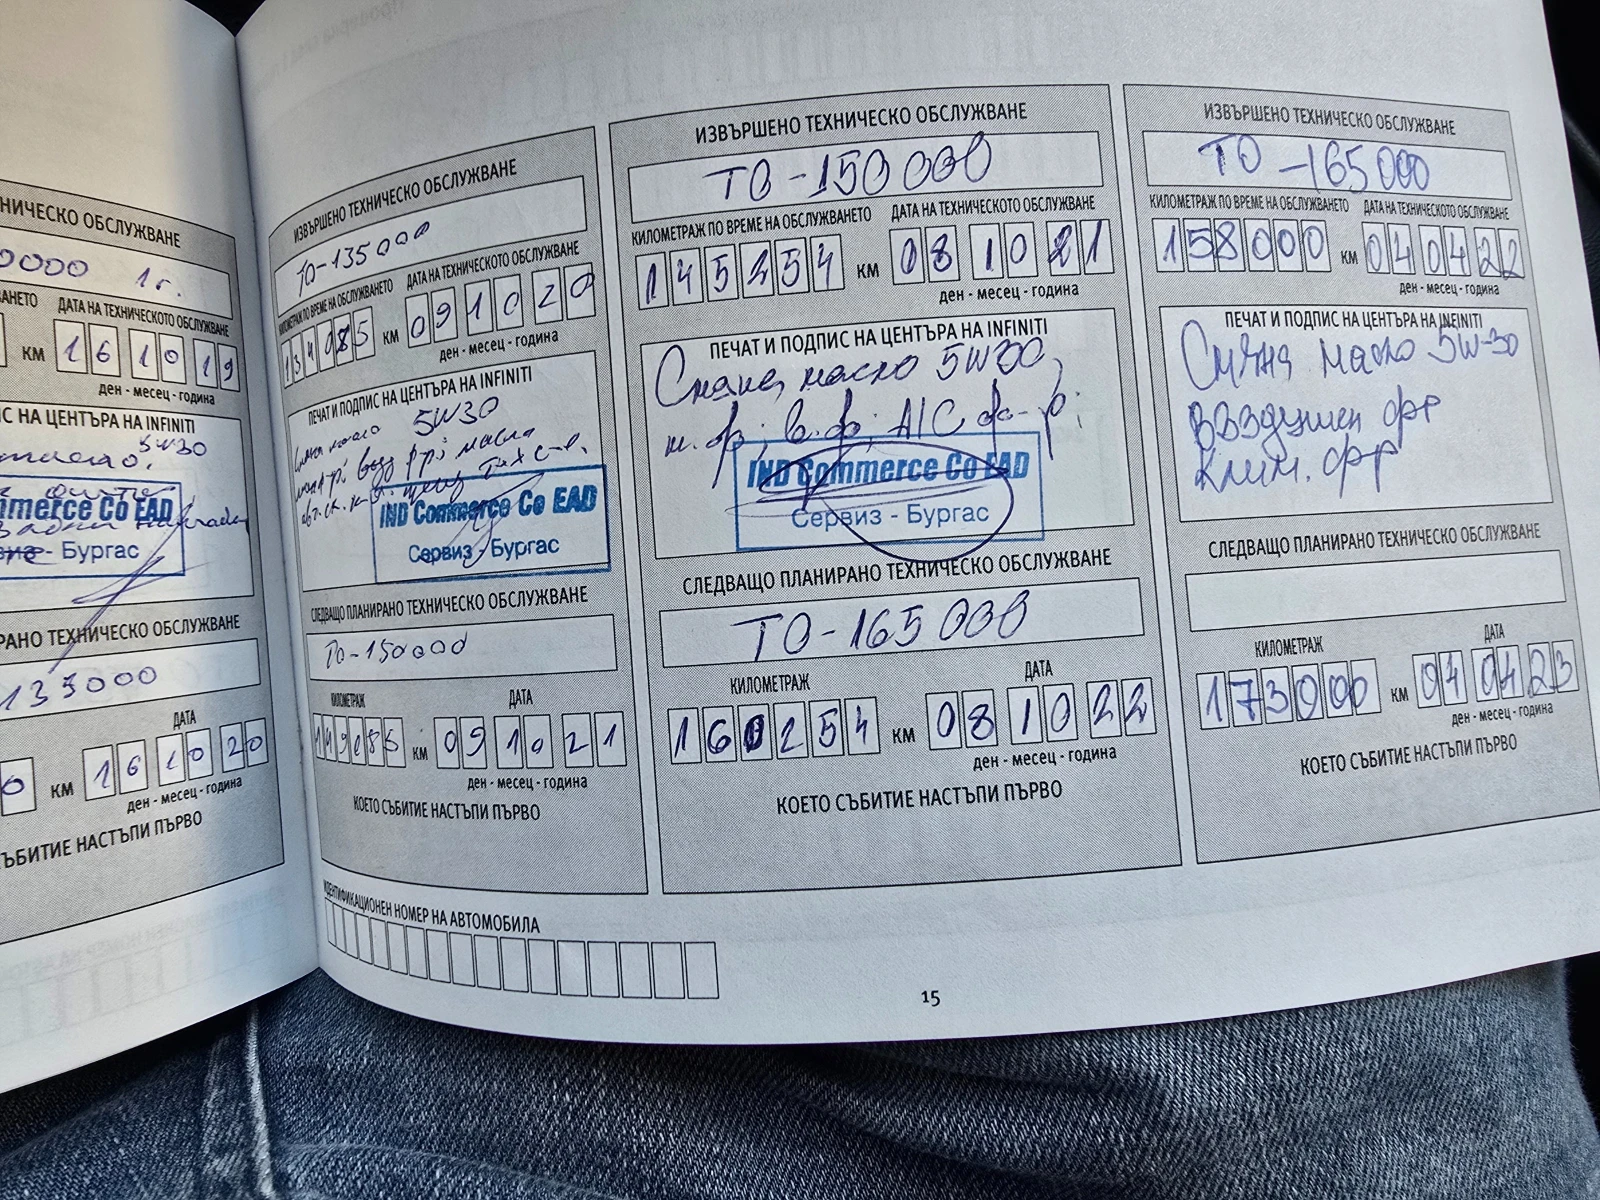 НИЧЕСКО ОБСЛУЖВАНЕ
0000 1г.
ВАНЕТО ДАТА НА ТЕХНИЧЕСКОТО ОБСЛУЖВАНЕ
КМ 16 10 19
ден - месец - година
С НА ЦЕНТЪРА НА INFINITI
5W30
mmerce Co EAD
- Бургас
РАНО ТЕХНИЧЕСКО ОБСЛУЖВАНЕ
135000
ДАТА
0 КМ 16 10 20
ден - месец - година
СЪБИТИЕ НАСТЪПИ ПЪРВО
ИЗВЪРШЕНО ТЕХНИЧЕСКО ОБСЛУЖВАНЕ
ТО-135000
КИЛОМЕТРАЖ ПО ВРЕМЕ НА ОБСЛУЖВАНЕТО ДАТА НА ТЕХНИЧЕСКОТО ОБСЛУЖВАНЕ
134085 КМ 09 10 20
ден - месец - година
ПЕЧАТ И ПОДПИС НА ЦЕНТЪРА НА INFINITI
масло 5W30
IND Commerce Co EAD
Сервиз - Бургас
СЛЕДВАЩО ПЛАНИРАНО ТЕХНИЧЕСКО ОБСЛУЖВАНЕ
ТО-150000
КИЛОМЕТРАЖ ДАТА
КМ 09 10 21
ден - месец - година
КОЕТО СЪБИТИЕ НАСТЪПИ ПЪРВО
ИЗВЪРШЕНО ТЕХНИЧЕСКО ОБСЛУЖВАНЕ
ТО-150000
КИЛОМЕТРАЖ ПО ВРЕМЕ НА ОБСЛУЖВАНЕТО ДАТА НА ТЕХНИЧЕСКОТО ОБСЛУЖВАНЕ
145254 КМ 08 10 21
ден - месец - година
ПЕЧАТ И ПОДПИС НА ЦЕНТЪРА НА INFINITI
Смяна масло 5W30,
м.ф; в.ф; A/C ф-р;
IND Commerce Co EAD
Сервиз - Бургас
СЛЕДВАЩО ПЛАНИРАНО ТЕХНИЧЕСКО ОБСЛУЖВАНЕ
ТО-165000
КИЛОМЕТРАЖ ДАТА
160254 КМ 08 10 22
ден - месец - година
КОЕТО СЪБИТИЕ НАСТЪПИ ПЪРВО
ИЗВЪРШЕНО ТЕХНИЧЕСКО ОБСЛУЖВАНЕ
ТО -165000
КИЛОМЕТРАЖ ПО ВРЕМЕ НА ОБСЛУЖВАНЕТО ДАТА НА ТЕХНИЧЕСКОТО ОБСЛУЖВАНЕ
158000 КМ 04 04 22
ден - месец - година
ПЕЧАТ И ПОДПИС НА ЦЕНТЪРА НА INFINITI
Смяна масло 5W-30
Въздушен фр
Клим. фр
СЛЕДВАЩО ПЛАНИРАНО ТЕХНИЧЕСКО ОБСЛУЖВАНЕ
КИЛОМЕТРАЖ ДАТА
173000 КМ 04 04 23
ден - месец - година
КОЕТО СЪБИТИЕ НАСТЪПИ ПЪРВО
ИДЕНТИФИКАЦИОНЕН НОМЕР НА АВТОМОБИЛА
15